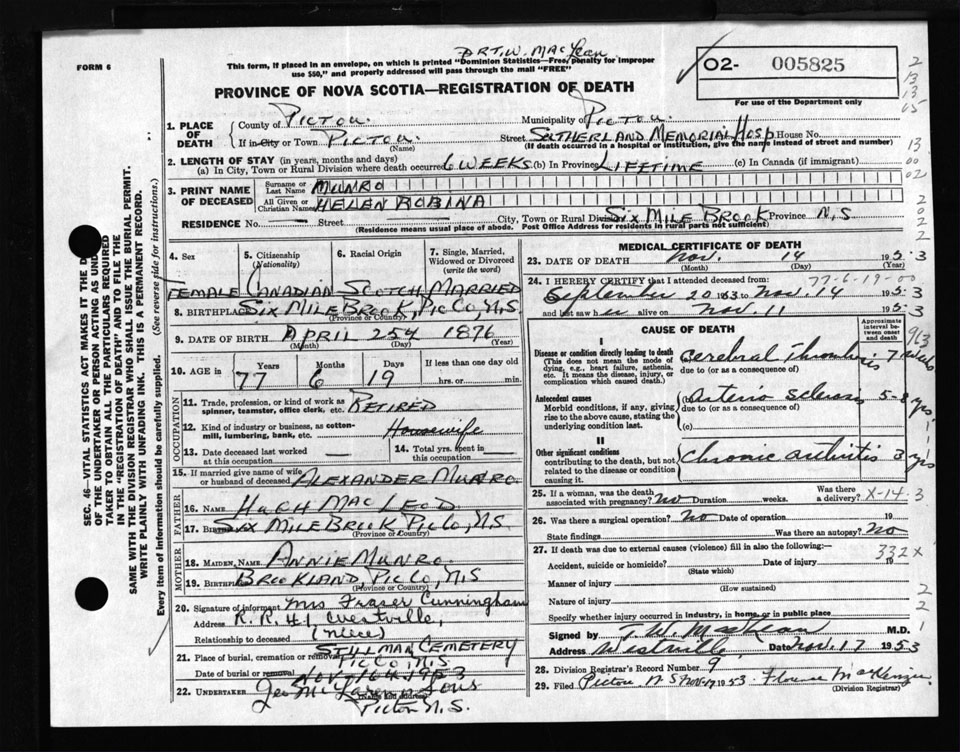 DR T. W. MacLean
FORM 6
This form, if placed in an envelope, on which is printed "Dominion Statistics—Free, penalty for improper
use $50," and properly addressed will pass through the mail "FREE"
PROVINCE OF NOVA SCOTIA—REGISTRATION OF DEATH
O2- 005825
For use of the Department only
2
13
13
65
13
00
02
2
0
2
2
1. PLACE OF DEATH
County of Pictou Municipality of Pictou
If in City or Town Pictou (Name) Street Sutherland Memorial Hosp House No.
(If death occurred in a hospital or institution, give the name instead of street and number)
2. LENGTH OF STAY (in years, months and days)
(a) In City, Town or Rural Division where death occurred 6 weeks (b) In Province Lifetime (c) In Canada (if immigrant)
3. PRINT NAME OF DECEASED
Surname or Last Name MUNRO
All Given or Christian Names HELEN ROBINA
RESIDENCE No. Street City, Town or Rural Division Six Mile Brook Province N.S
(Residence means usual place of abode. Post Office Address for residents in rural parts not sufficient)
4. Sex 5. Citizenship (Nationality) 6. Racial Origin 7. Single, Married, Widowed or Divorced (write the word)
Female Canadian Scotch Married
8. BIRTHPLACE Six Mile Brook, Pic Co, N.S
(Province or Country)
9. DATE OF BIRTH April 25th 1876
(Month) (Day) (Year)
10. AGE in Years Months Days If less than one day old
77 6 19 hrs. or min.
OCCUPATION
11. Trade, profession, or kind of work as spinner, teamster, office clerk, etc. Retired
12. Kind of industry or business, as cotton-mill, lumbering, bank, etc. Housewife
13. Date deceased last worked at this occupation — 14. Total yrs. spent in this occupation —
15. If married give name of wife or husband of deceased Alexander Munro
FATHER
16. NAME Hugh MacLeod
17. Birthplace Six Mile Brook, Pic Co, N.S
(Province or Country)
MOTHER
18. MAIDEN NAME Annie Munro
19. Birthplace Brookland, Pic Co, N.S
(Province or Country)
20. Signature of informant Mrs Fraser Cunningham
Address R.R. #1, Westville,
Relationship to deceased (Niece)
21. Place of burial, cremation or removal Stillman Cemetery
Pic Co, N.S
Date of burial or removal Nov 16th 1953
22. UNDERTAKER Geo McLaren & Sons
Pictou N.S.
MEDICAL CERTIFICATE OF DEATH
23. DATE OF DEATH Nov. 14 1953
(Month) (Day) (Year)
77-6-19-00
24. I HEREBY CERTIFY that I attended deceased from:
September 20 1953 to Nov. 14 1953
and last saw her alive on Nov. 11 1953
CAUSE OF DEATH
Approximate interval between onset and death
I
Disease or condition directly leading to death (a) Cerebral Thrombosis 7 weeks
(This does not mean the mode of dying, e.g., heart failure, asthenia, etc. It means the disease, injury, or complication which caused death.)
due to (or as a consequence of)
Antecedent causes (b) Arterio sclerosis 5-8 yrs
Morbid conditions, if any, giving rise to the above cause, stating the underlying condition last.
due to (or as a consequence of)
(c)
II
Other significant conditions contributing to the death, but not related to the disease or condition causing it.
Chronic arthritis 3 yrs
25. If a woman, was the death associated with pregnancy? no Duration weeks. Was there a delivery?
X-14-3
26. Was there a surgical operation? no Date of operation 19
State findings Was there an autopsy? no
27. If death was due to external causes (violence) fill in also the following:—
332X
Accident, suicide or homicide? Date of injury 19
(State which)
Manner of injury
(How sustained)
Nature of injury
Specify whether injury occurred in industry, in home or in public place
Signed by T. W. MacLean M.D.
Address Westville, Date Nov. 17 1953
28. Division Registrar's Record Number 9
29. Filed Pictou N S Nov-17 1953 Florence MacKenzie
(Division Registrar)
SEC. 46—VITAL STATISTICS ACT MAKES IT THE DUTY
OF THE UNDERTAKER OR PERSON ACTING AS UNDERTAKER
TO OBTAIN ALL THE PARTICULARS REQUIRED
IN THE "REGISTRATION OF DEATH" AND TO FILE THE
SAME WITH THE DIVISION REGISTRAR WHO SHALL ISSUE THE BURIAL PERMIT.
WRITE PLAINLY WITH UNFADING INK. THIS IS A PERMANENT RECORD.
Every item of information should be carefully supplied. (See reverse side for instructions.)